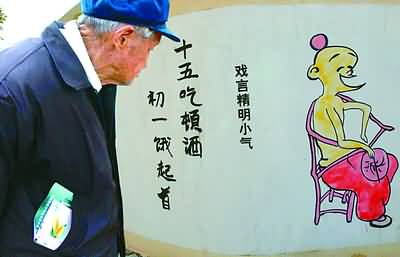 戏言精明小气
十五吃頓酒
初一饿起首